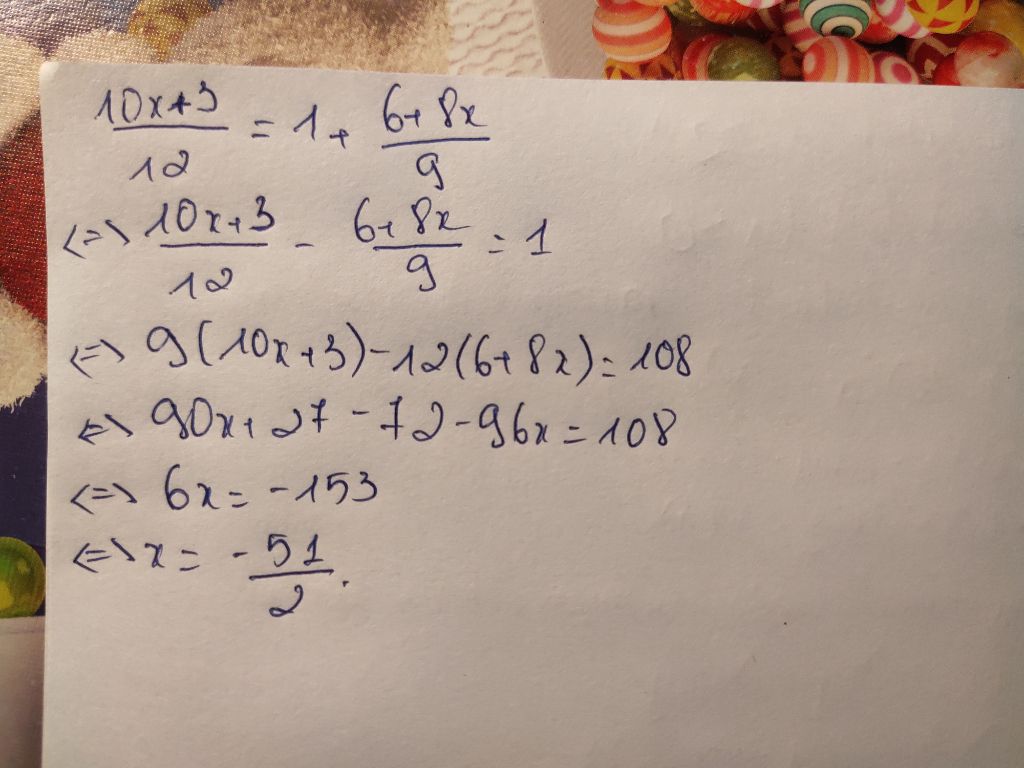 10x+3/12 = 1 + 6+8x/9
<=> 10x+3/12 - 6+8x/9 = 1
<=> 9(10x+3)-12(6+8x)=108
<=> 90x+27-72-96x=108
<=> 6x=-153
<=> x= -51/2.